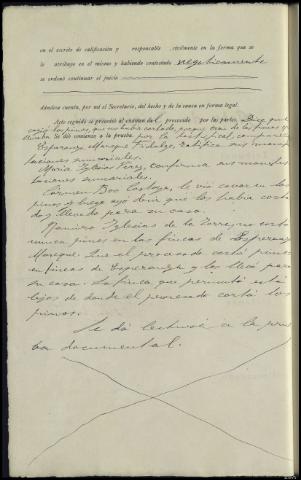 en el escrito de calificación y responsable civilmente en la forma que se
le atribuye en el mismo y habiendo contestado negativamente
se ordenó continuar el juicio
Admitese cuenta, por mí el Secretario, del hecho y de lo consta en forma legal.
Acto seguido se procedió al examen del procesado por las partes. Dice que
cogió los pinos, que no había cortado, porque eran de las fincas y
se dió comienzo a la prueba por la testifical, compareció
Esperanza Mareque Fidalgo, ratifica sus manifes
taciones sumariales.
María Iglesias Pérez, confirma sus manifes
taciones sumariales.
Carmen Boo Castaya, le vió cavar en los
pinos y luego oyó decir que los había corta
do y llevado para su casa.
Ramiro Iglesias de la Torre, no cortó
nunca pinos en las fincas de Esperanza
Mareque. Que el procesado cortó pinos
en fincas de Esperanza y los llevó para
su casa. La finca que permutó está
lejos de donde el procesado cortó los
pinos.
Se dá lectura a la prue
ba documental.